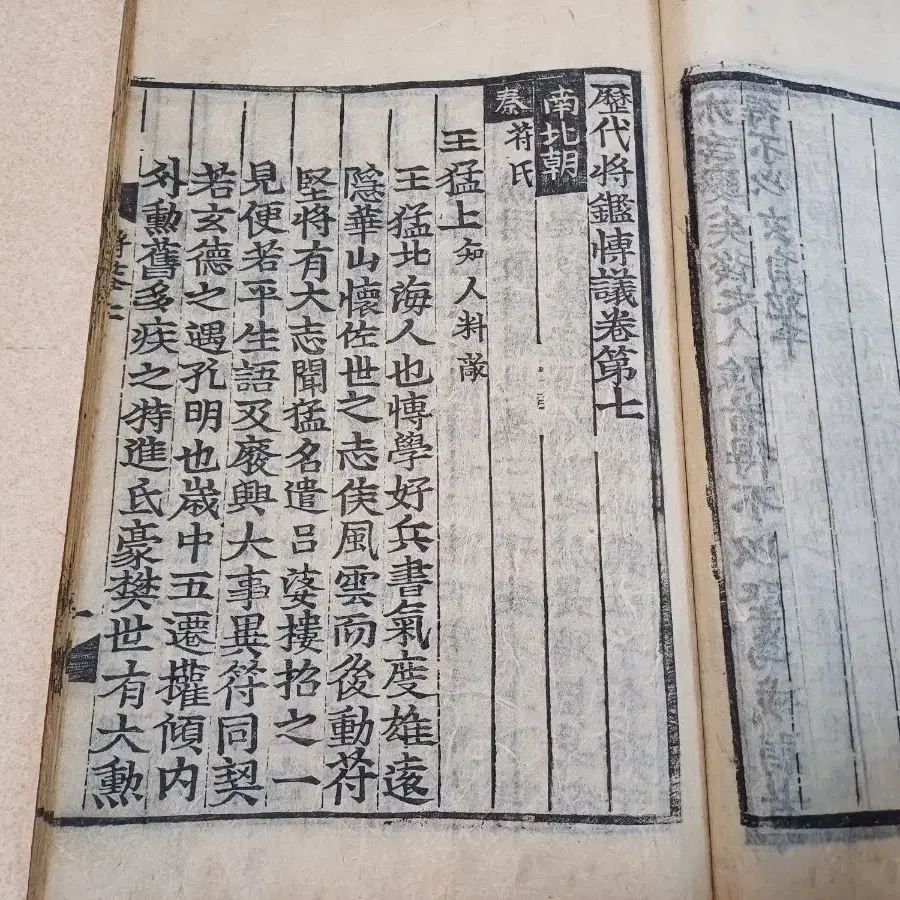 歷代将鑑愽議卷第七
南北朝
秦 苻氏
王猛上 知人料敵
王猛北海人也愽學好兵書氣度雄遠
隠華山懷佐世之志俟風雲而後動苻
堅将有大志聞猛名遣吕婆樓招之一
見便若平生語及廢興大事異符同契
若玄德之遇孔明也歳中五遷權傾内
外勲舊多疾之特進氏豪樊世有大勲